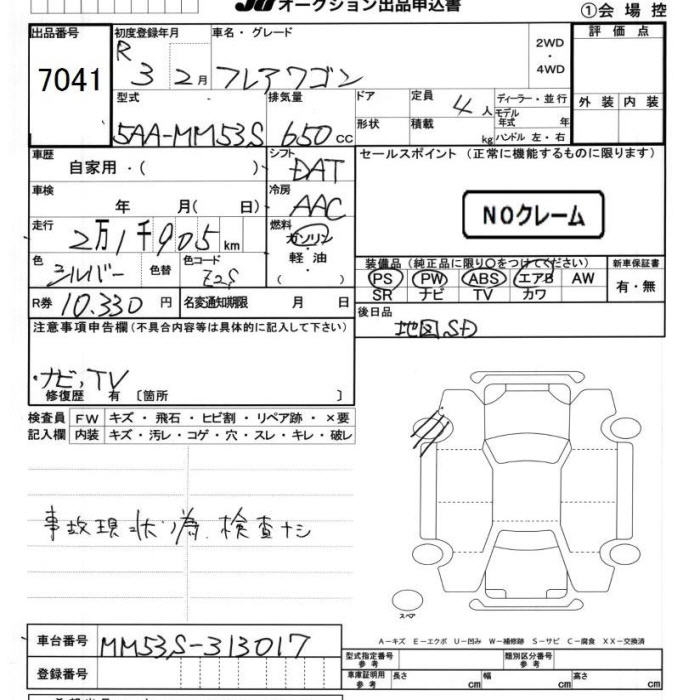 オークション出品申込書
①会場控
出品番号 初度登録年月 車名・グレード 2WD ・ 4WD 評価点
7041 R 3 2月 フレアワゴン
型式 排気量 ドア 定員 4人 ディーラー・並行 外装 内装
5AA-MM53S 650cc 形状 積載 kg モデル年式 年 ハンドル 左・右
車歴 自家用・( ) シフト DAT セールスポイント (正常に機能するものに限ります)
車検 年 月( 日) 冷房 AAC NOクレーム
走行 2万1千905km 燃料 ガソリン
軽油
( )
色 シルバー 色替 色コード Z2S 装備品 (純正品に限り○をつけてください) 新車保証書
PS PW ABS エアB AW 有・無
SR ナビ TV カワ
R券 10.330円 名変通知期限 月 日 後日品
地図SD
注意事項申告欄(不具合内容等は具体的に記入して下さい)
・ナビ,TV
修復歴 有 〔箇所 〕
検査員 FW キズ・飛石・ヒビ割・リペア跡・×要
記入欄 内装 キズ・汚レ・コゲ・穴・スレ・キレ・破レ
事故現状ノ為 検査ナシ
スペア
A－キズ E－エクボ U－凹み W－補修跡 S－サビ C－腐食 XX－交換済
車台番号 MM53S-313017 型式指定番号 参考 類別区分番号 参考
登録番号 車庫証明用 参考 長さ cm 幅 cm 高さ cm